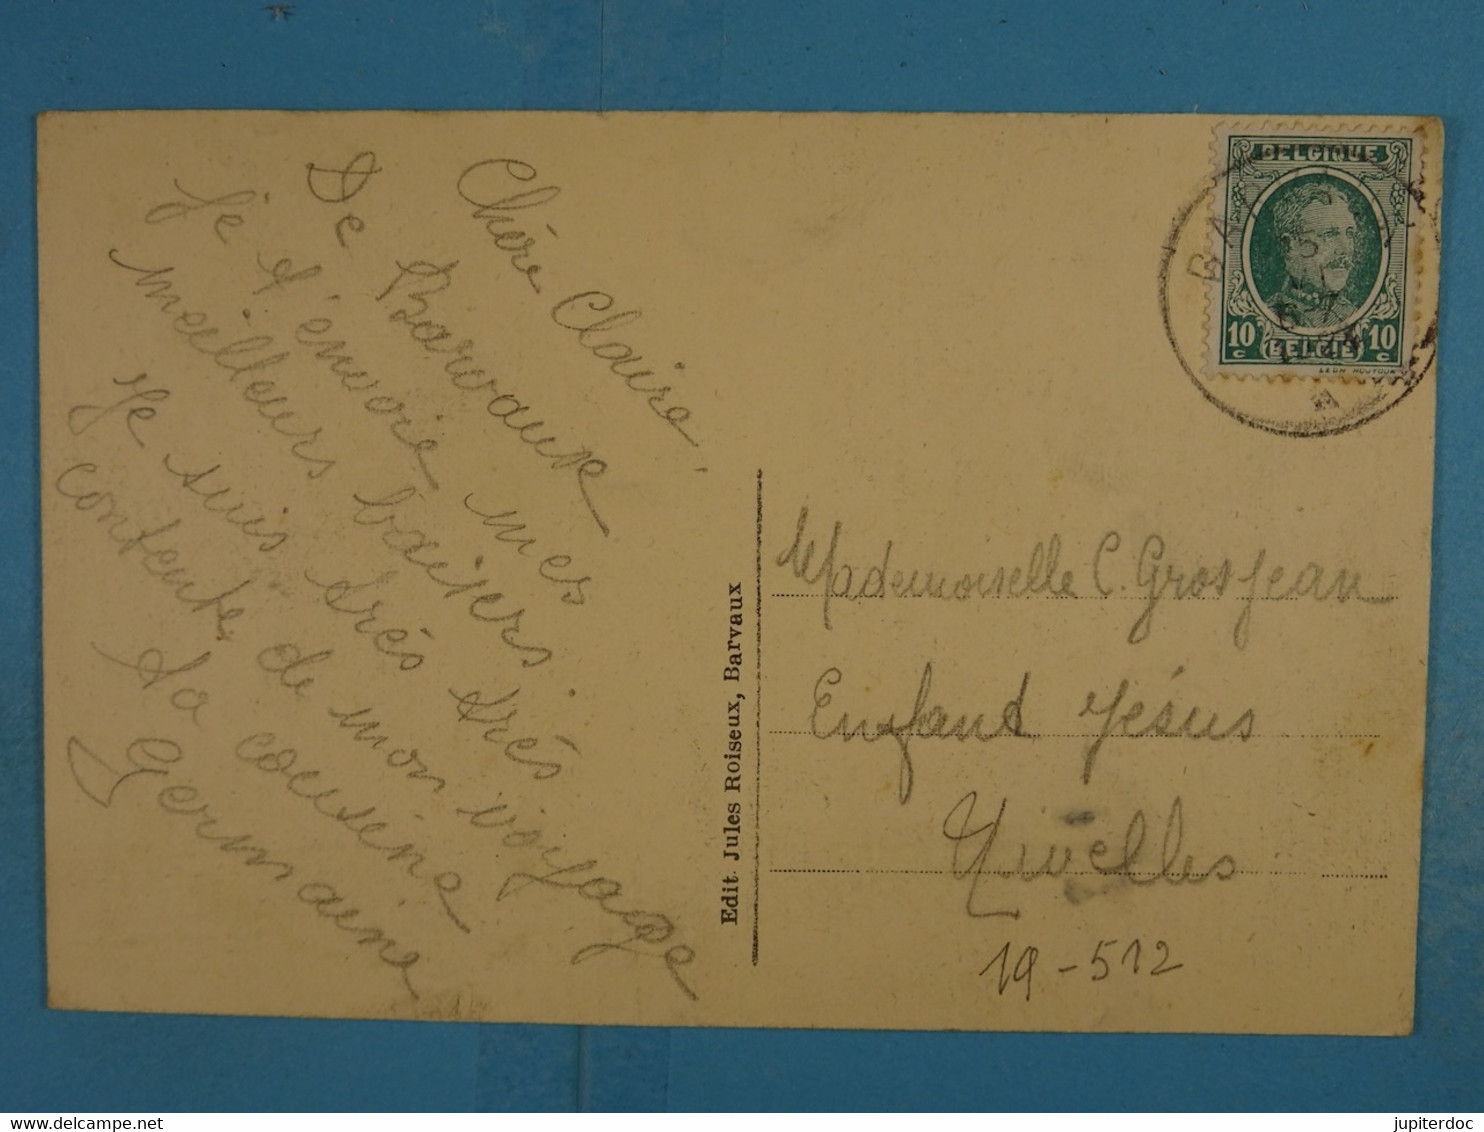 Chère Claire,
De Barvaux
je t'envoie mes
meilleurs baisers.
Je suis très très
contente de mon voyage
Ta cousine
Germaine
Edit. Jules Roiseux, Barvaux
BELGIQUE
10 c 10 c
BELGIË
Mademoiselle C. Grosjean
Enfant Jésus
Nivelles
19-512
jupiterdoc